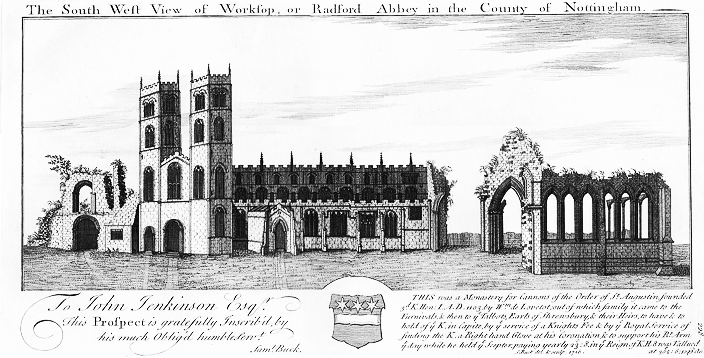 The South West View of Workſop, or Radford Abbey in the County of Nottingham.
To John Jenkinson Esqr.
This Proſpect is gratefully Inscrib'd by
his much Oblig'd humble Servt.
Saml. Buck.
THIS was a Monaſtery for Cannons of the Order of St. Auguſtin founded
3d. K. Hen. I. A.D. 1103 by Wm. de Lovetot, out of which family it came to the
Furnivals, & then to ye Talbott, Earls of Shrewsbury, & their Heirs, to have & to
hold of ye K. in Capite, by ye service of a Knights Fee & by ye Royal service of
finding the K. a Right hand Glove at his Coronation, & to support his Rt. Arm
yt day while he held ye Scepter, paying yearly 23. 8. in ye Reign of K. H. 8
S. Buck del. & sculp. 1726.